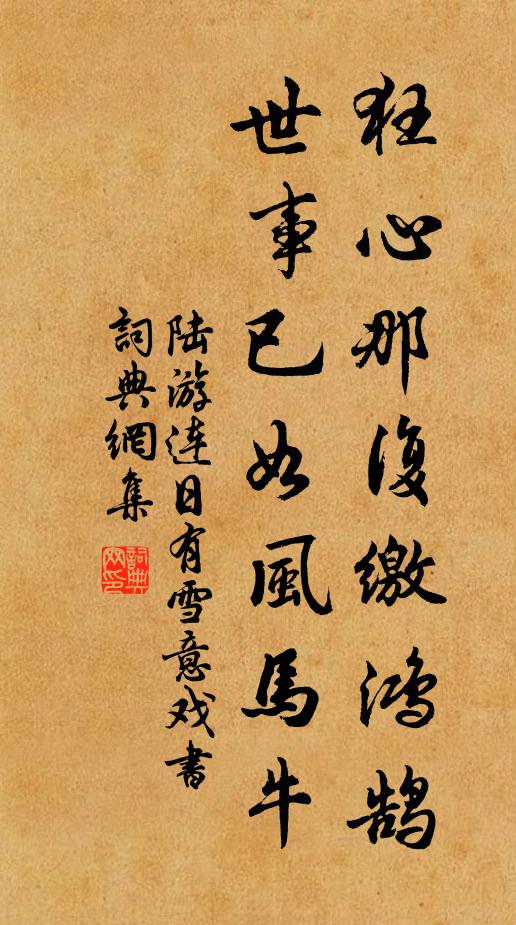 狂心那復繳鴻鵠
世事已如風馬牛
陆游连日有雪意戏書
詞典網集
詞典網印